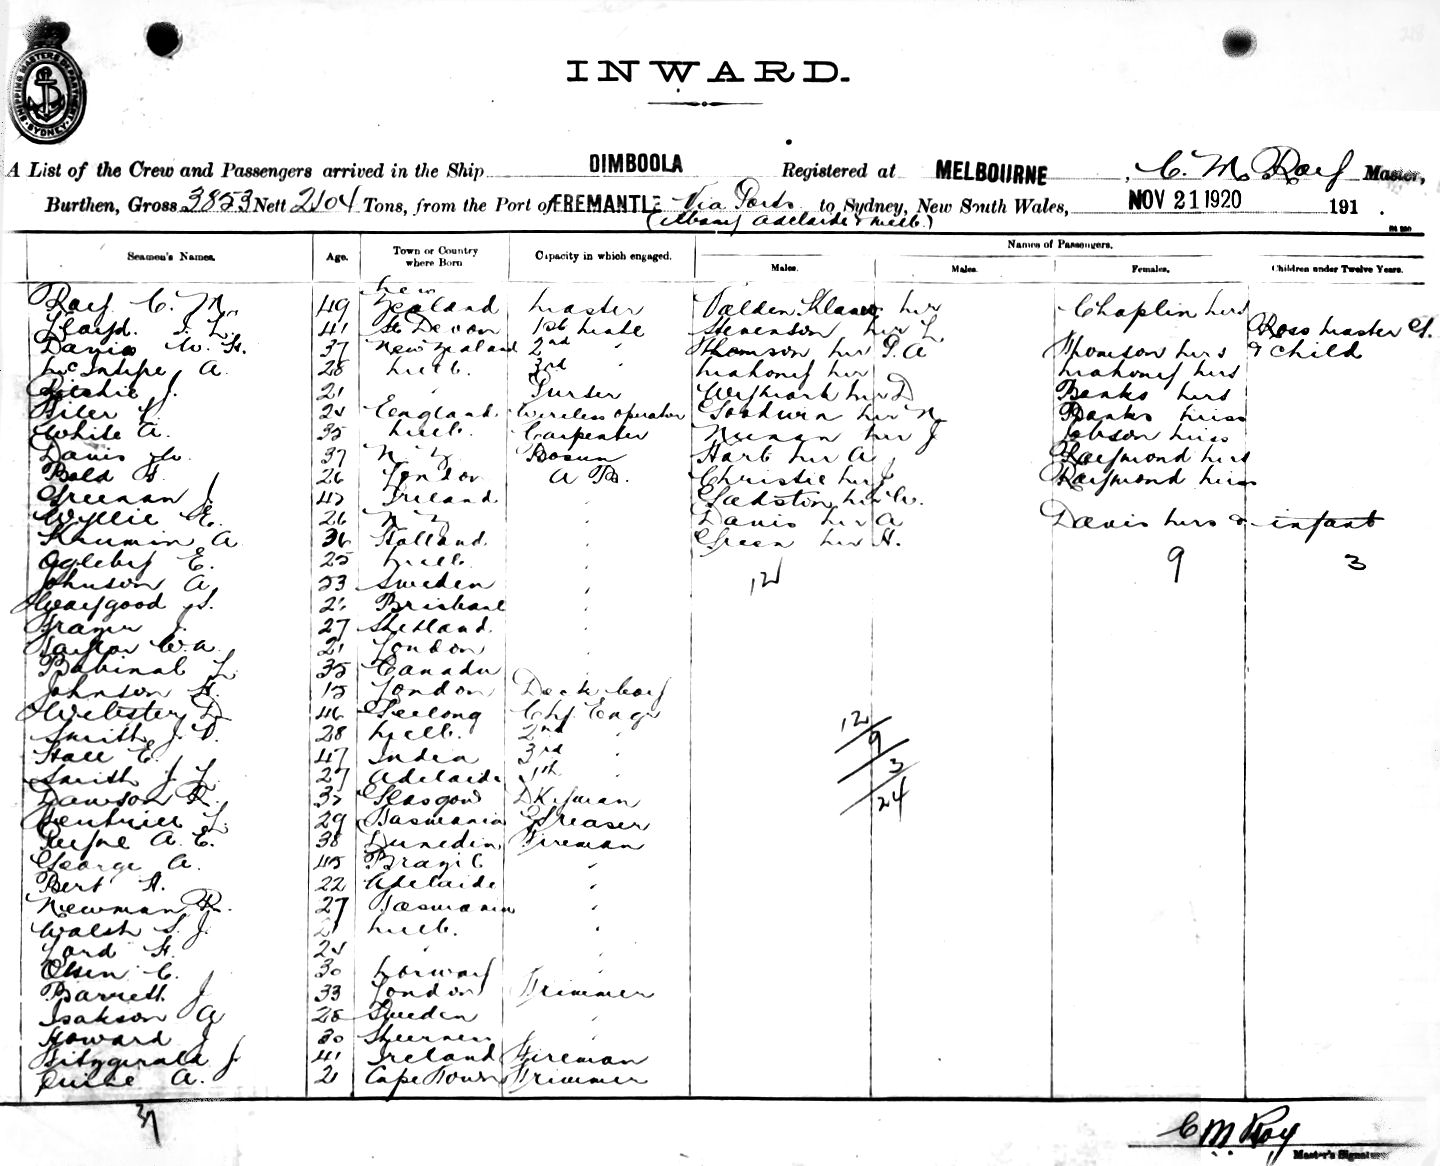 SHIPPING MASTERS DEPARTMENT SYDNEY
INWARD.
A List of the Crew and Passengers arrived in the Ship DIMBOOLA Registered at MELBOURNE, C. M. Roy Master,
Burthen, Gross 3853 Nett 2104 Tons, from the Port of FREMANTLE Via Ports to Sydney, New South Wales, NOV 21 1920 191 .
(Albany Adelaide & Melb.)
Seamen's Names. Age. Town or Country where Born Capacity in which engaged. Names of Passengers.
Males. Males. Females. Children under Twelve Years.
Roy C. M. 49 New Zealand Master Mr Chaplin Mrs
Lloyd. 41 Devon 1st Mate Stevenson Mr L Ross Master G.
Davis W. H. 37 New Zealand 2nd " Thomson Mr P. A Thomson Mrs & Child
McIntyre A. 28 Melb. 3rd " Mahony Mr Mahony Mrs
Ritchie J. 21 " Purser Mr D Banks Mrs
C. England Wireless operator Goodwin Mr N. Banks Miss
White A. 35 Melb. Carpenter Neenan Mr J Jobson Miss
Davis W. 37 N Z Bosun Hart Mr A Raymond Mrs
Bold F. 26 London A B. Christie Mr J Raymond Miss
Greenan J. Ireland " Gadston Mr W.
Wyllie 26 N Z " Davis Mr A Davis Mrs & infant
A 36 Holland " Green Mr H.
Ogleby E. 25 Melb. " 12 9 3
Johnson A. 23 Sweden "
Waygood S. 26 Brisbane "
J. 27 Shetland. "
Taylor W. A. 21 London "
Babinal L. 35 Canada
Johnson H. 15 London Deck boy
Webster D 46 Geelong Chf Engr 12
Smith J. D. 28 Melb. 2nd " 9
Hall E. 47 India 3rd " 3
Smith J. L. 27 Adelaide 4th 24
Dawson R. Glasgow Dkyman
L. 29 Tasmania Greaser
Payne A. E. 38 Dunedin Fireman
George A. 45 Brazil "
Bert H. 22 Adelaide "
Newman R. 27 Tasmania "
Walsh S. J. 21 Melb. "
Lord H. " "
Olsen C. 30 Norway "
Barrett J 33 London Trimmer
Isakson A 28 Sweden "
Howard J 30 Sheerness "
Fitzgerald J 41 Ireland Fireman
A. 21 Cape Town Trimmer
37
C M Roy
Master's Signature